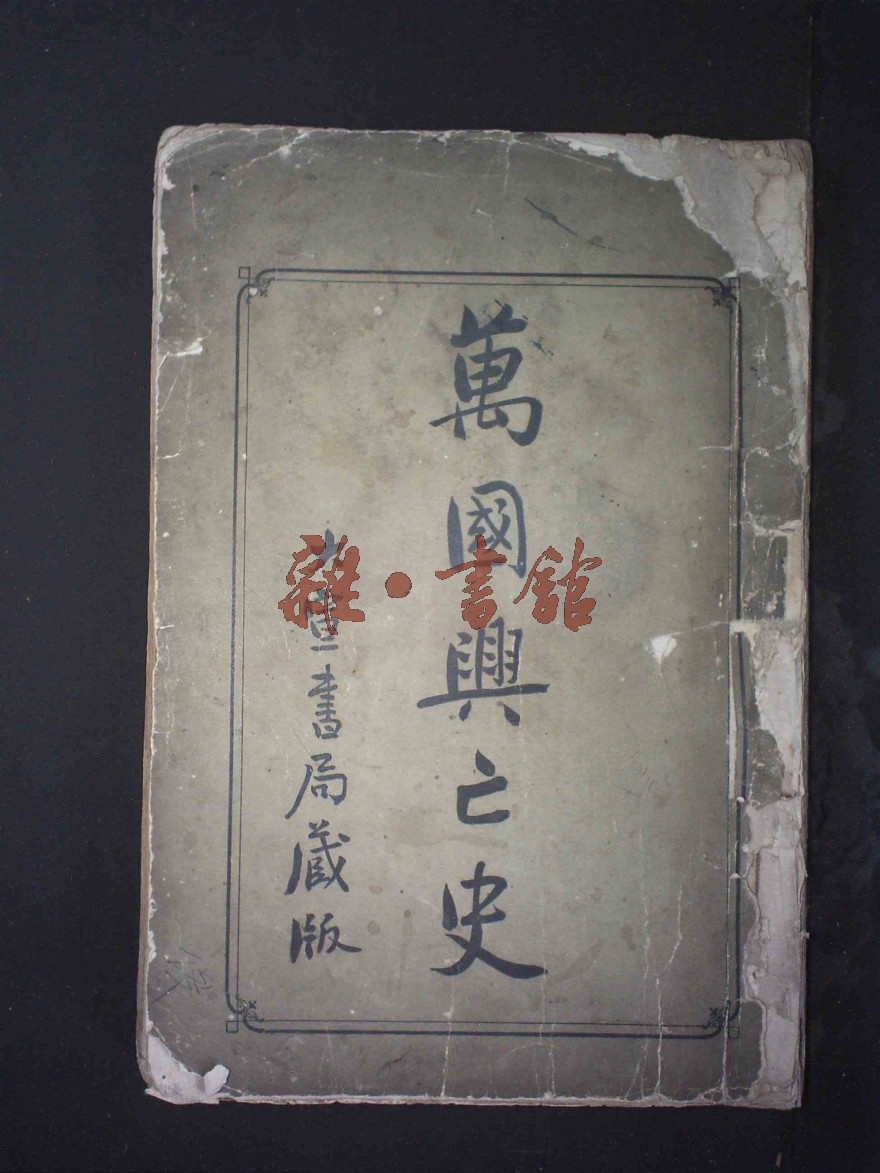 萬國興亡史
宣書局藏版
雜·書館